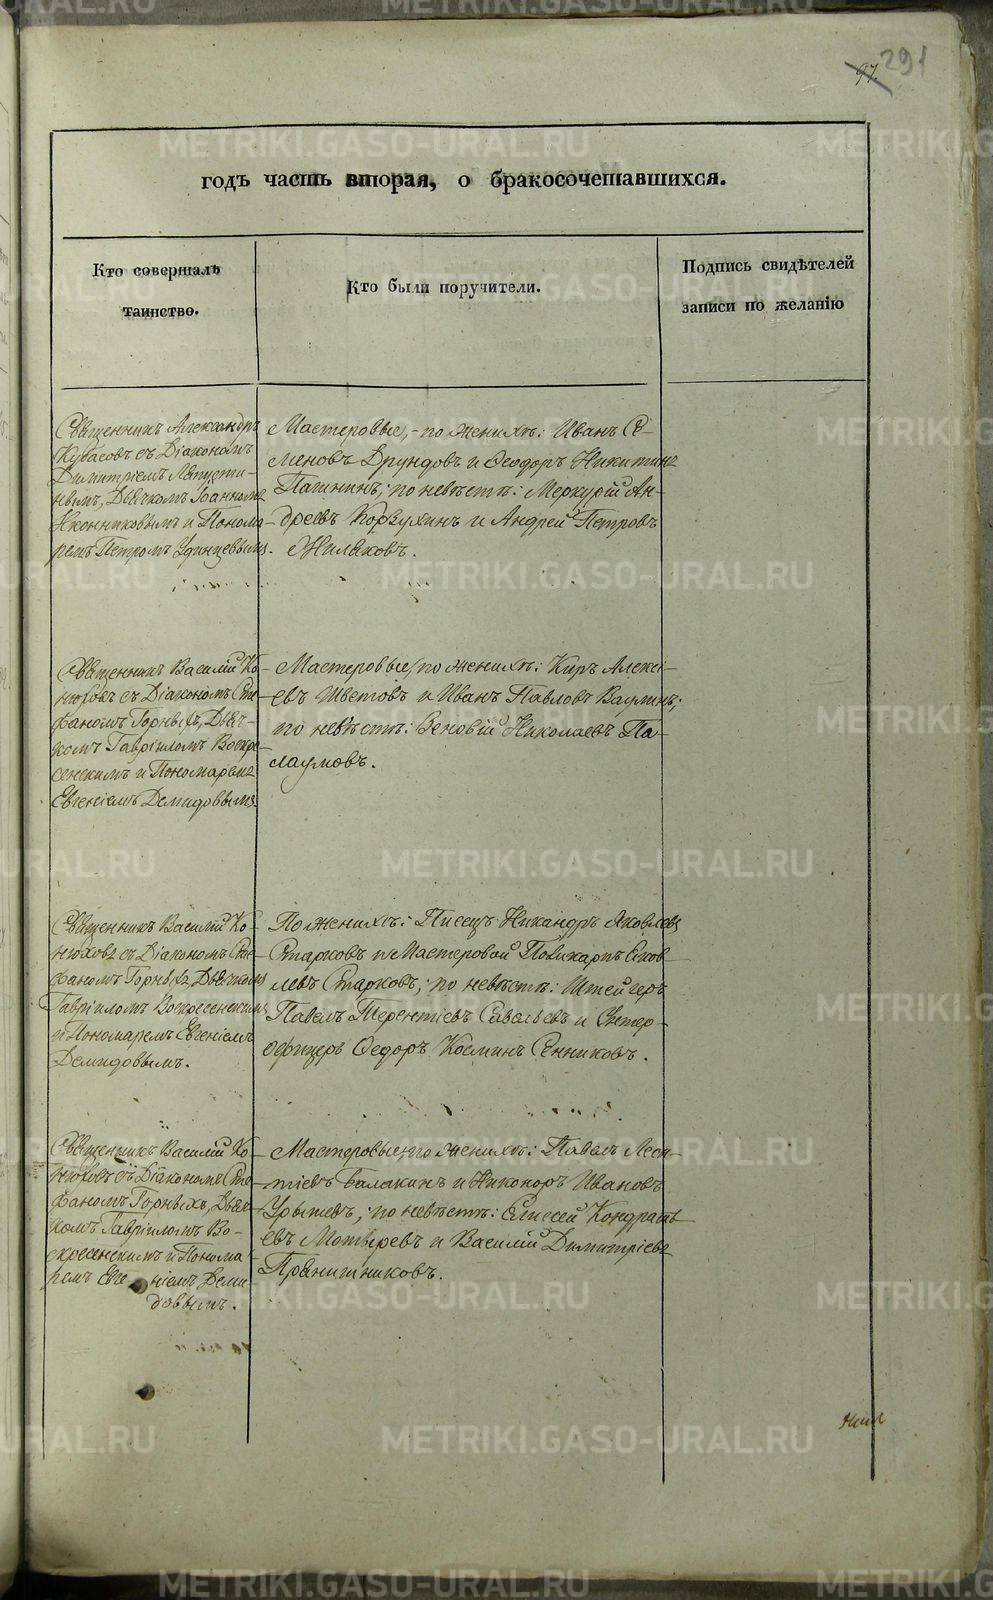 97. 291
годъ часть вторая, о бракосочетавшихся.
Кто совершалъ
таинство.
Кто были поручители.
Подпись свидѣтелей
записи по желанію
Священникъ Александръ
Кубасовъ съ Діакономъ
Димитріемъ
нымъ, Дьячкомъ Іоанномъ
Иконниковымъ и Понома-
ремъ Петромъ Удинцевымъ.
Мастеровые, - по женихѣ: Иванъ Се-
меновъ Друндовъ и Ѳеодоръ Никитинъ
Папнинъ; по невѣстѣ: Меркурій Ан-
дреевъ Корзухинъ и Андрей Петровъ
Жиляковъ.
Священникъ Василій Ко-
нюховъ съ Діакономъ Сте-
фаномъ Горныхъ, Дьяч-
комъ Гавріиломъ Воскре-
сенскимъ и Пономаремъ
Евгеніемъ Демидовымъ.
Мастеровые, по женихѣ: Киръ Алексѣ-
евъ Цвѣтовъ и Иванъ Павловъ Ваулинъ;
по невѣстѣ: Зеновій Николаевъ Па-
лаумовъ.
Священникъ Василій Ко-
нюховъ съ Діакономъ Сте-
фаномъ Горныхъ Дьячкомъ
Гавріиломъ Воскресенскимъ
и Пономаремъ Евгеніемъ
Демидовымъ.
По женихѣ: Писецъ Никандръ Яковлевъ
Старковъ и Мастеровой Поликарпъ Яков-
левъ Старковъ; по невѣстѣ: Штейгеръ
Павелъ Терентіевъ Савельевъ и Унтер-
офицеръ Ѳедоръ Косминъ Сенниковъ.
Священникъ Василій Ко-
нюховъ съ Діакономъ Сте-
фаномъ Горныхъ, Дьяч-
комъ Гавріиломъ Во-
скресенскимъ и Понома-
ремъ Евгеніемъ Деми-
довымъ.
Мастеровые, по женихѣ: Павелъ Леон-
тіевъ Балакинъ и Никоноръ Ивановъ
Урышевъ; по невѣстѣ: Елисей Кондрать-
евъ Мотыревъ и Василій Димитріевъ
Пранишниковъ.
METRIKI.GASO-URAL.RU